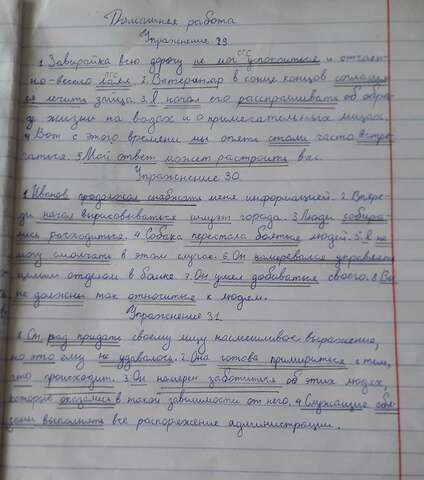 Домашнее работа
Упражнение 29
1. Завирайка всю дорогу не мог успокоиться и отчаян-
СГС
но-весело лаял. 2. Ветеринар в конце концов соглаша
ПГС
ся лечить зайца. 3. Я начал его расспрашивать об обра-
зе жизни на водах и о примечательных лицах.
4. Вот с этого времени мы опять стали часто встре-
чаться. 5. Мой ответ может расстроить вас.
Упражнение 30
1. Иванов продолжал снабжать меня информацией. 2. Впере-
ди начал вырисовываться силуэт города. 3. Люди собира-
лись расходиться. 4. Собака перестала бояться людей. 5. Я не
могу смолчать в этом случае. 6. Он намеревался управлять
целым отделом в банке. 7. Он умел добиваться своего. 8. Вы
не должны так относиться к людям.
Упражнение 31
1. Он рад придать своему лицу насмешливое выражение,
но это ему не удавалось. 2. Она готова примириться с тем,
что происходит. 3. Он намерен заботиться об этих людях,
которые оказались в такой зависимости от него. 4. Служащие обя-
заны выполнять все распоряжение администрации.